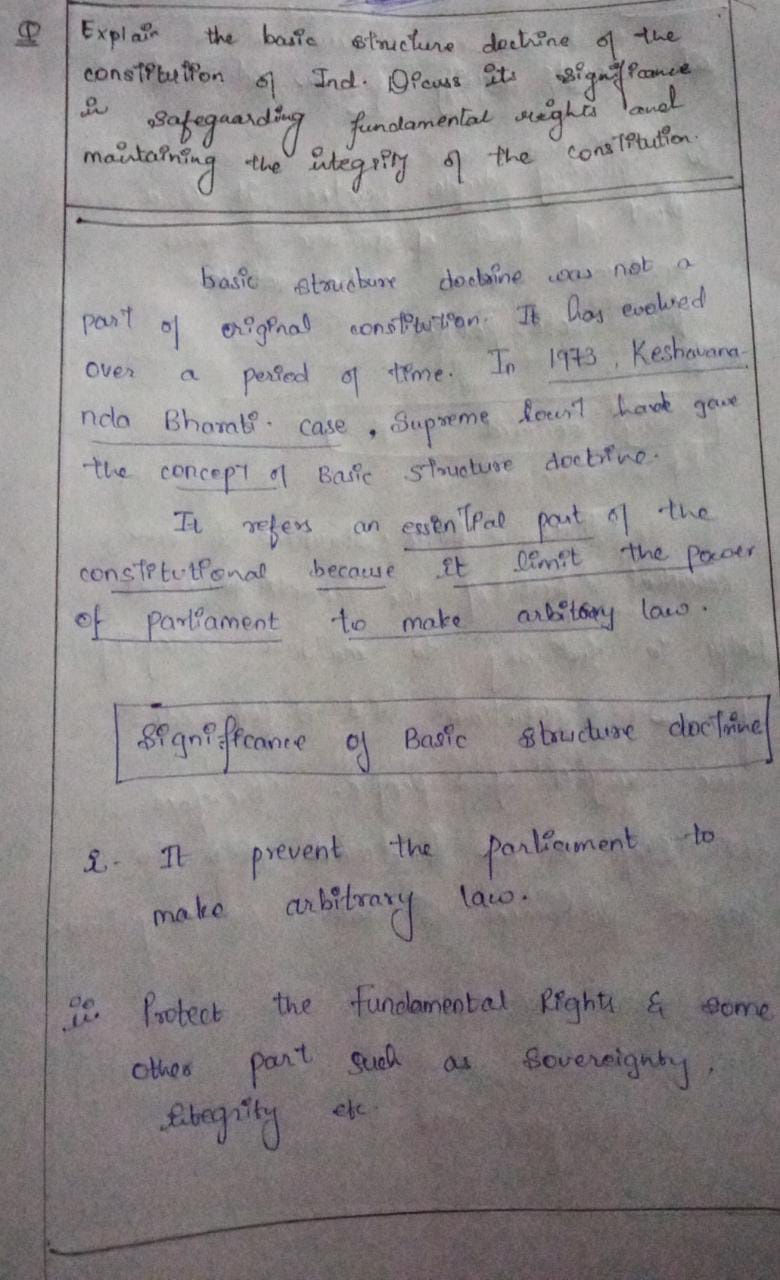 Q Explain the basic structure doctrine of the
constitution of Ind. Dicuss its significance
in safegaarding fundamental rights and
maintaining the integrity of the constitution.
basic structure doctrine was not a
part of original constitution. It has evolved
over a period of time. In 1973, Keshavana-
nda Bharati. case, Supreme Court have gave
the concept of Basic structure doctrine.
It refers an essential part of the
constitutional because it limit the power
of parliament to make arbitary law.
Significance of Basic structure doctrine
i. It prevent the parliament to
make arbitrary law.
ii. Protect the fundamental Rights & some
other part such as Sovereignty,
integrity etc.